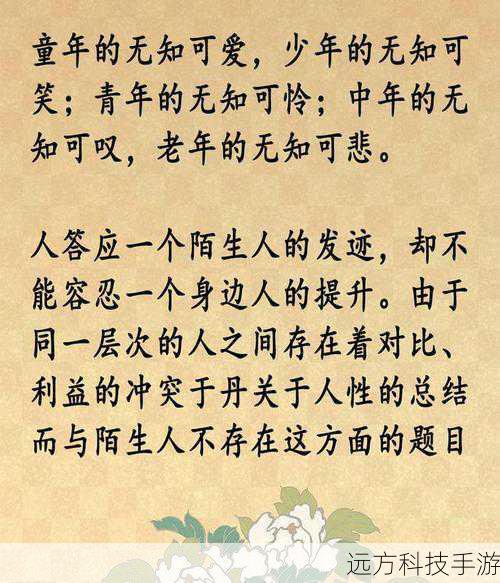 童年的无知可爱，少年的无知可
笑；青年的无知可怜；中年的无
知可叹，老年的无知可悲。
人答应一个陌生人的发迹，却不
能容忍一个身边人的提升。由于
同一层次的人之间存在着对比、
利益的冲突于丹关于人性的总结
而与陌生人不存在这方面的题目
远方科技手游